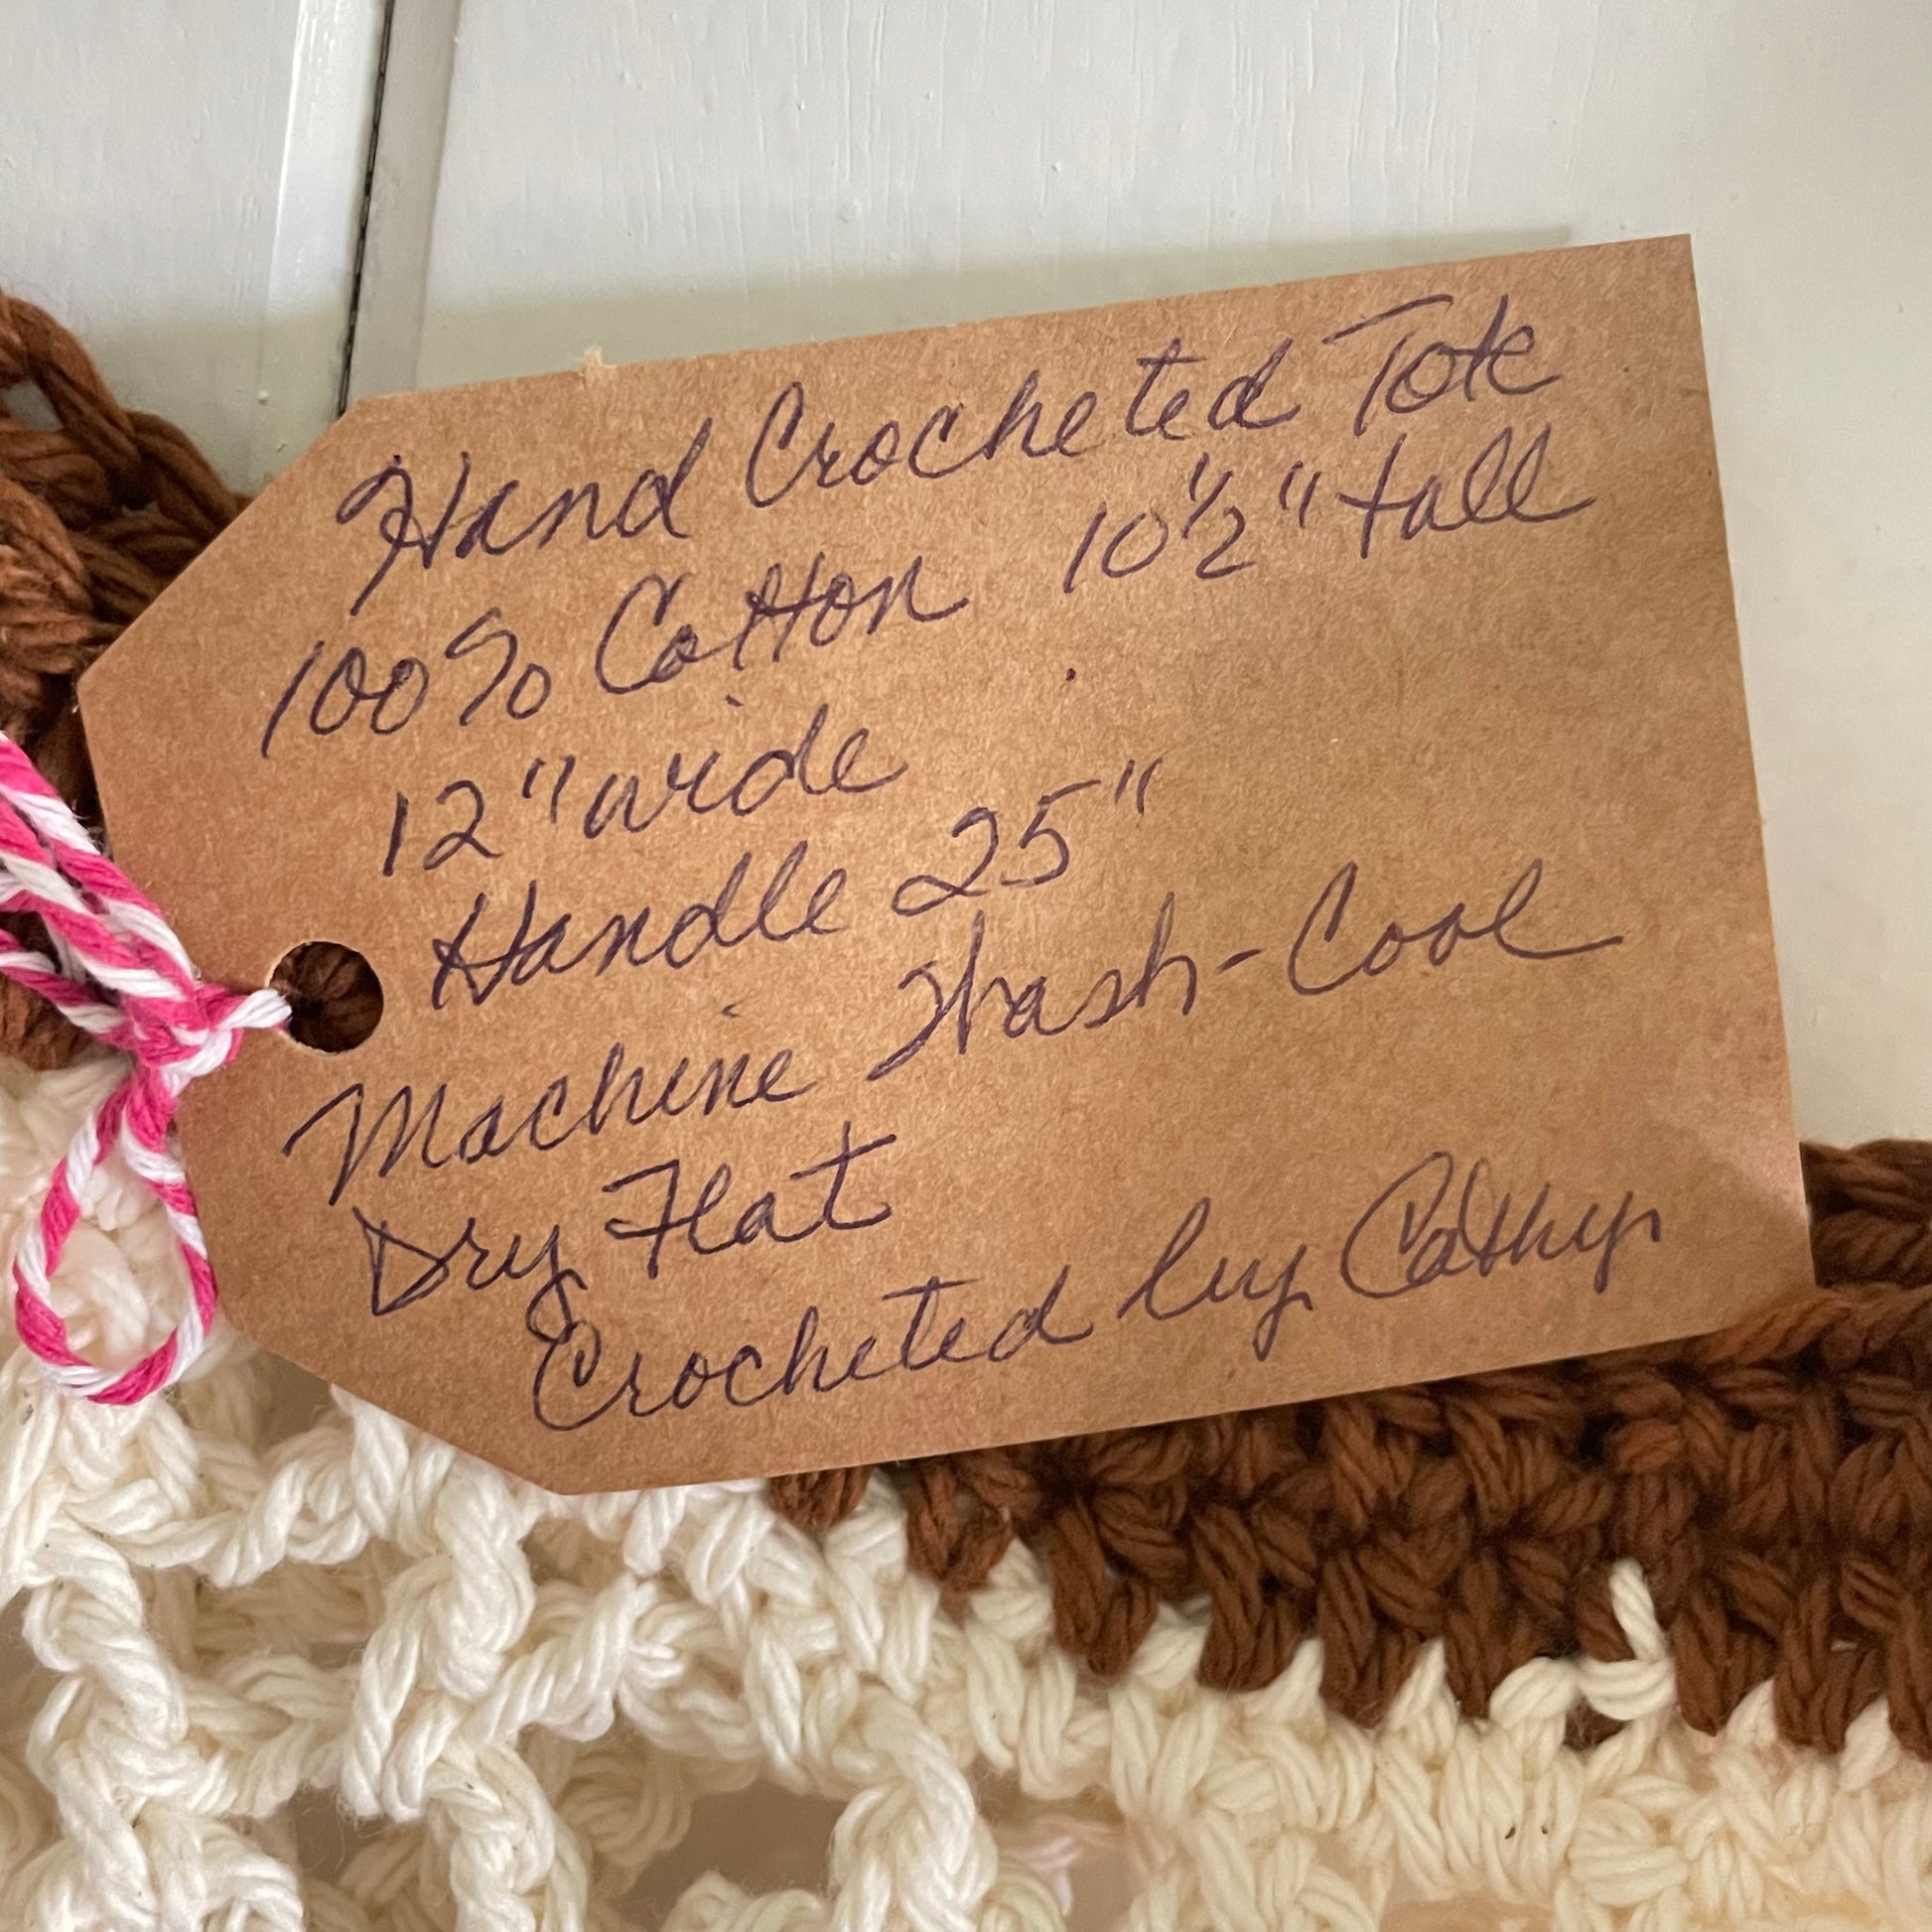 Hand Crocheted Tote
100% Cotton 10 1/2" tall
12" wide
Handle 25"
Machine Wash-Cool
Dry Flat
Crocheted by Cathy